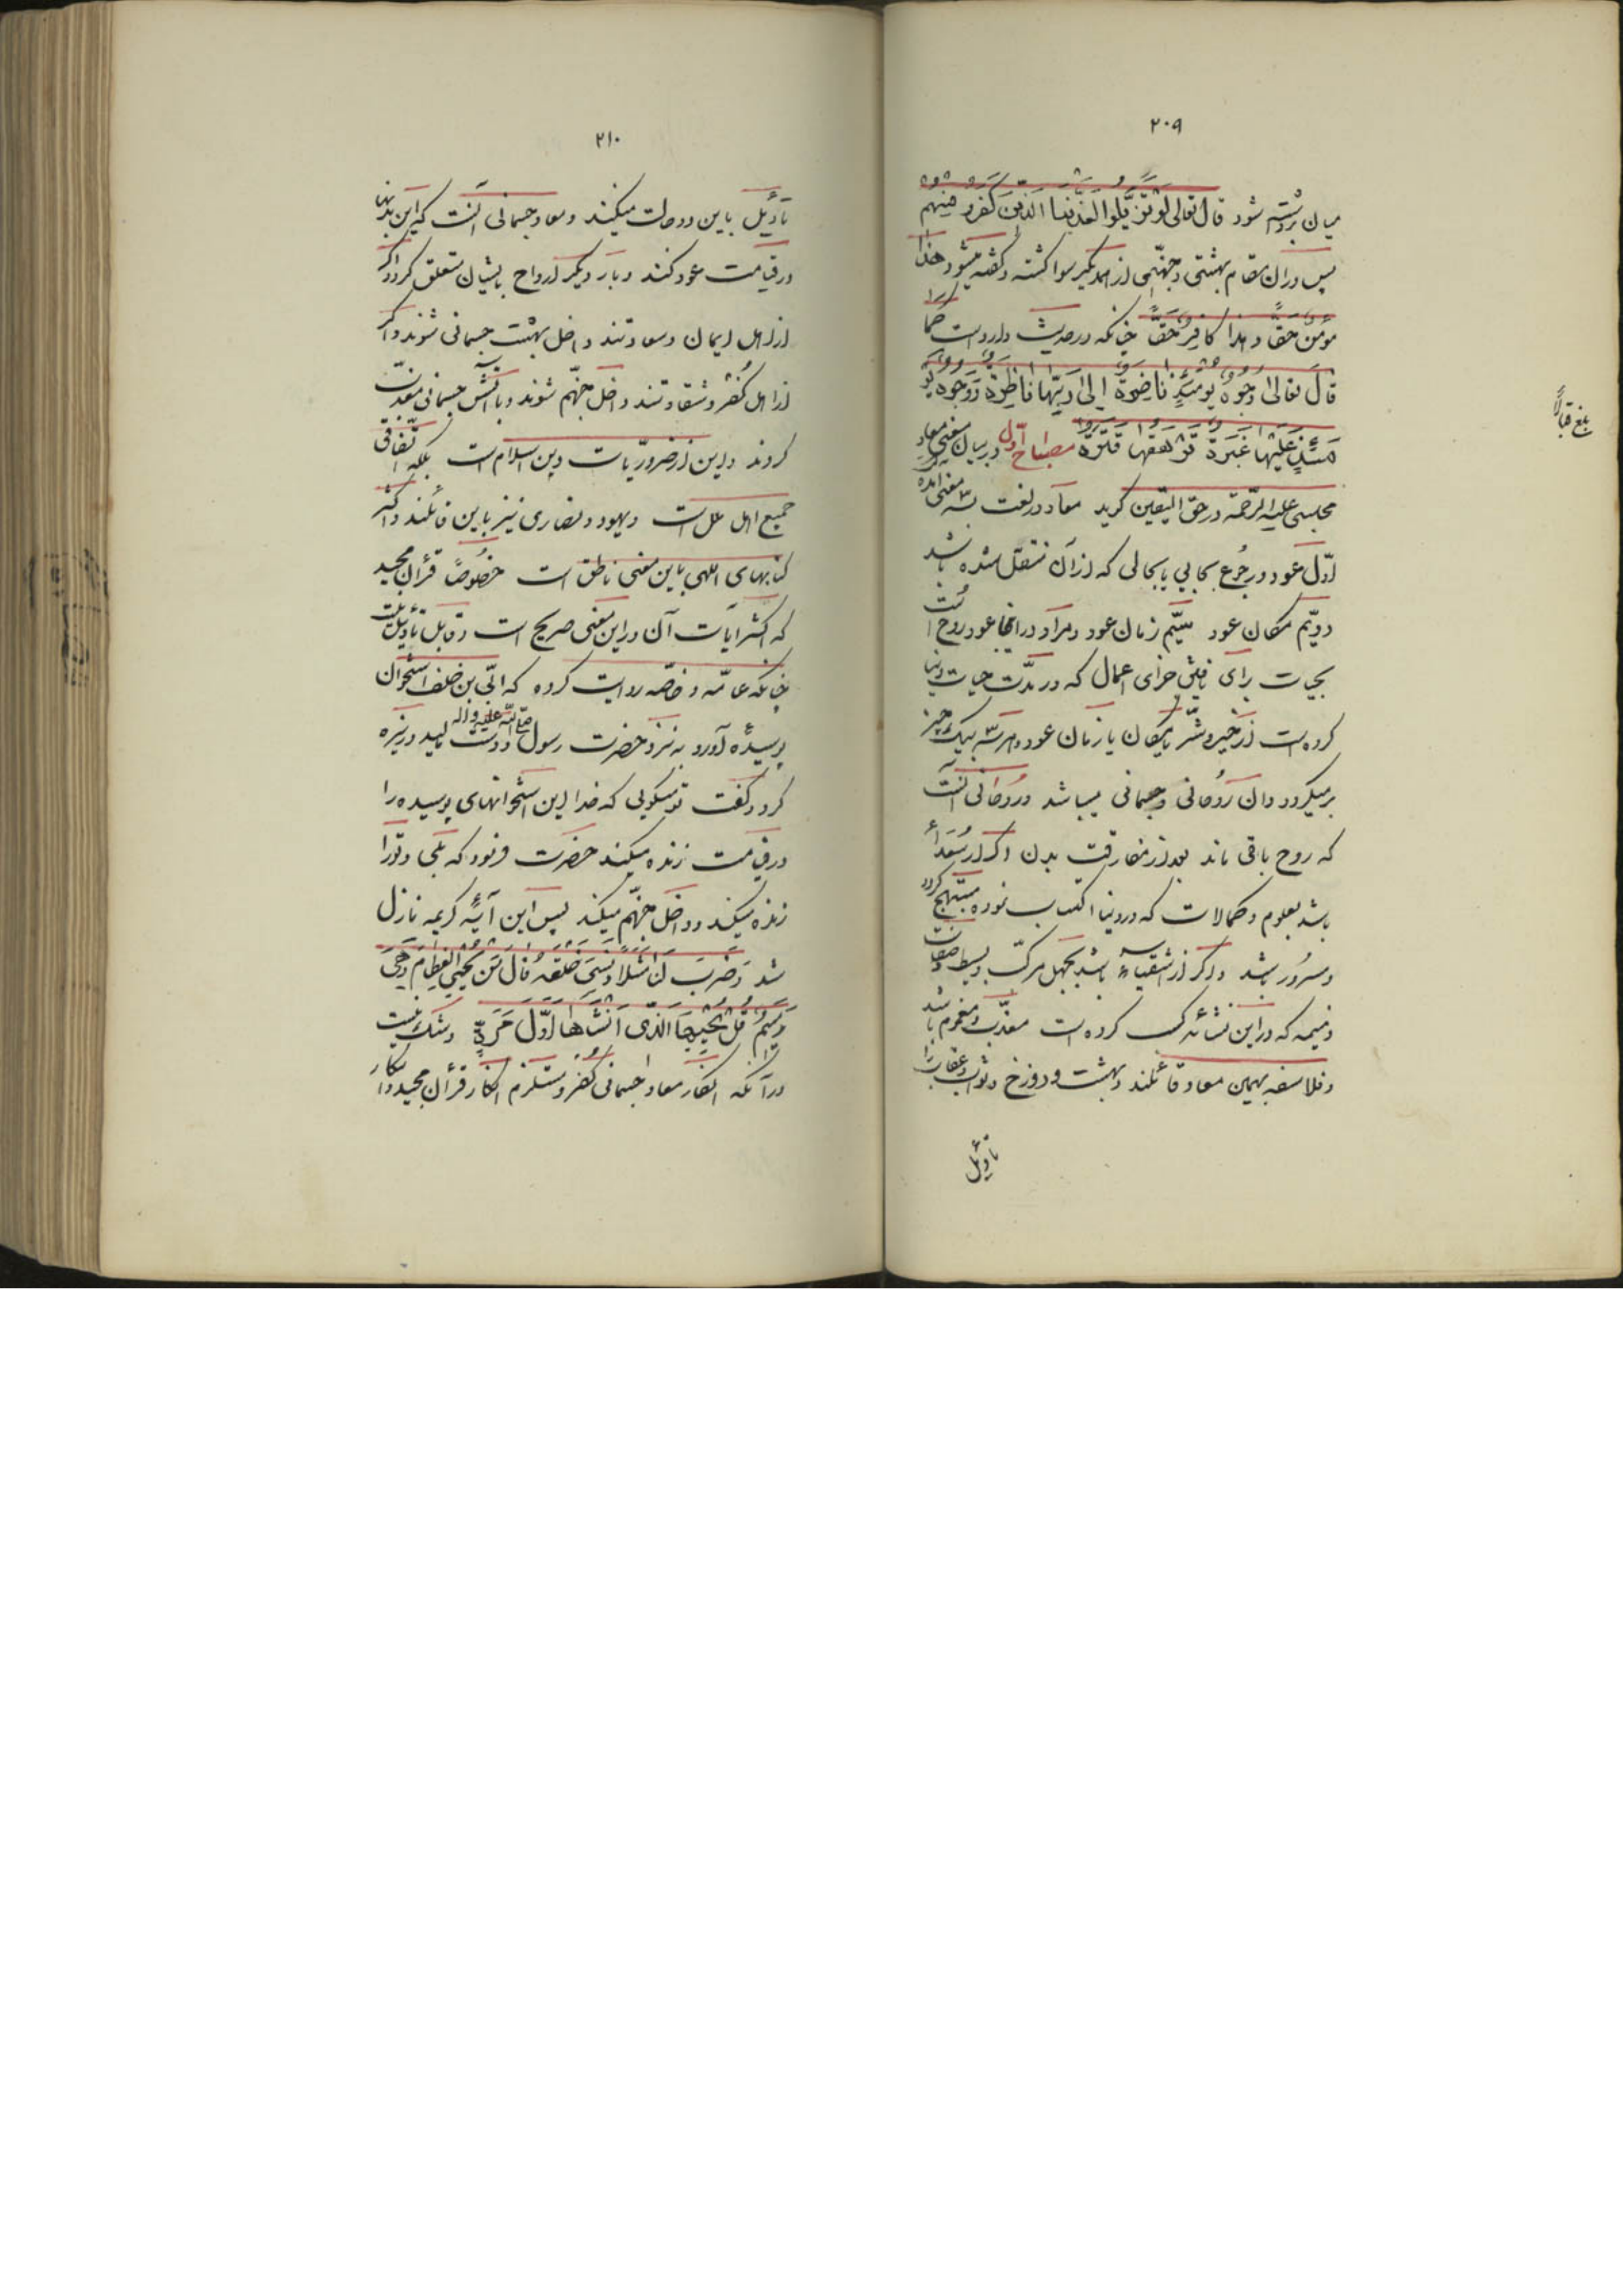 ۲۰۹
میان برداشته شود قال تعالی لو تزیلوا لعذبنا الذین کفروا منهم
پس در ان مقام بهشتی و جهنمی از همدیگر سوا گشته و گفته میشود هذا
مؤمن حقا و هذا کافر حقا چنانکه در حدیث وارد است کما
قال تعالی وجوه یومئذ ناضرة الی ربها ناظرة و وجوه یو
مئذ علیها غبرة ترهقها قترة مصباح اول در بیان معنی معاد
مجلسی علیه الرحمه در حق الیقین گوید معاد در لغت بسه معنی آمده
اول عود و رجوع بجایی یا بحالی که از آن منتقل شده باشد
دویم مکان عود سیم زمان عود و مراد در اینجا عود روح است
بحیات برای یافتن جزای اعمال که در مدت حیات دنیا
کرده است از خیر و شر یا مکان یا زمان عود و هر سه بیک چیز
برمیگردد و ان روحانی و جسمانی میباشد و روحانی آنست
که روح باقی ماند بعد از مفارقت بدن اگر از سعداء
باشد بعلوم و کمالات که در دنیا اکتساب نموده مبتهج گردد
و مسرور باشد و اگر از اشقیاء باشد بجهل مرکب و بسیط و صفات
ذمیمه که در این نشأه کسب کرده است معذب و مغموم باشد
و فلاسفه بهمین معاد قائلند و بهشت و دوزخ و ثواب و عقاب را
تأویل
بلغ قبالا
۲۱۰
تأویل باین دو حالت میکنند و معاد جسمانی آنست که این بدنها
در قیامت عود کنند و بار دیگر ارواح بایشان متعلق گردد اگر
از اهل ایمان و سعادتند داخل بهشت جسمانی شوند و اگر
از اهل کفر و شقاوتند داخل جهنم شوند و باتش جسمانی معذب
گردند و این از ضروریات دین اسلام است بلکه اتفاقی
جمیع اهل ملل است و یهود و نصاری نیز باین قائلند و اکثر
کتابهای الهی باین معنی ناطق است خصوصا قرآن مجید
که اکثر ایات آن در این معنی صریح است و قابل تأویل نیست
چنانکه عامه و خاصه روایت کرده که ابی بن خلف استخوان
پوسیده آورد به نزد حضرت رسول صلی الله علیه و اله و دست مالید و ریزه
کرد و گفت تو میگویی که خدا این استخوانهای پوسیده را
در قیامت زنده میکند حضرت فرمود که بلی و تو را
زنده میکند و داخل جهنم میکند پس این آیه کریمه نازل
شد و ضرب لنا مثلا و نسی خلقه قال من یحیی العظام و هی
رمیم قل یحییها الذی انشاها اول مرة و شک نیست
در آنکه انکار معاد جسمانی کفر و مستلزم انکار قرآن مجید و انکار